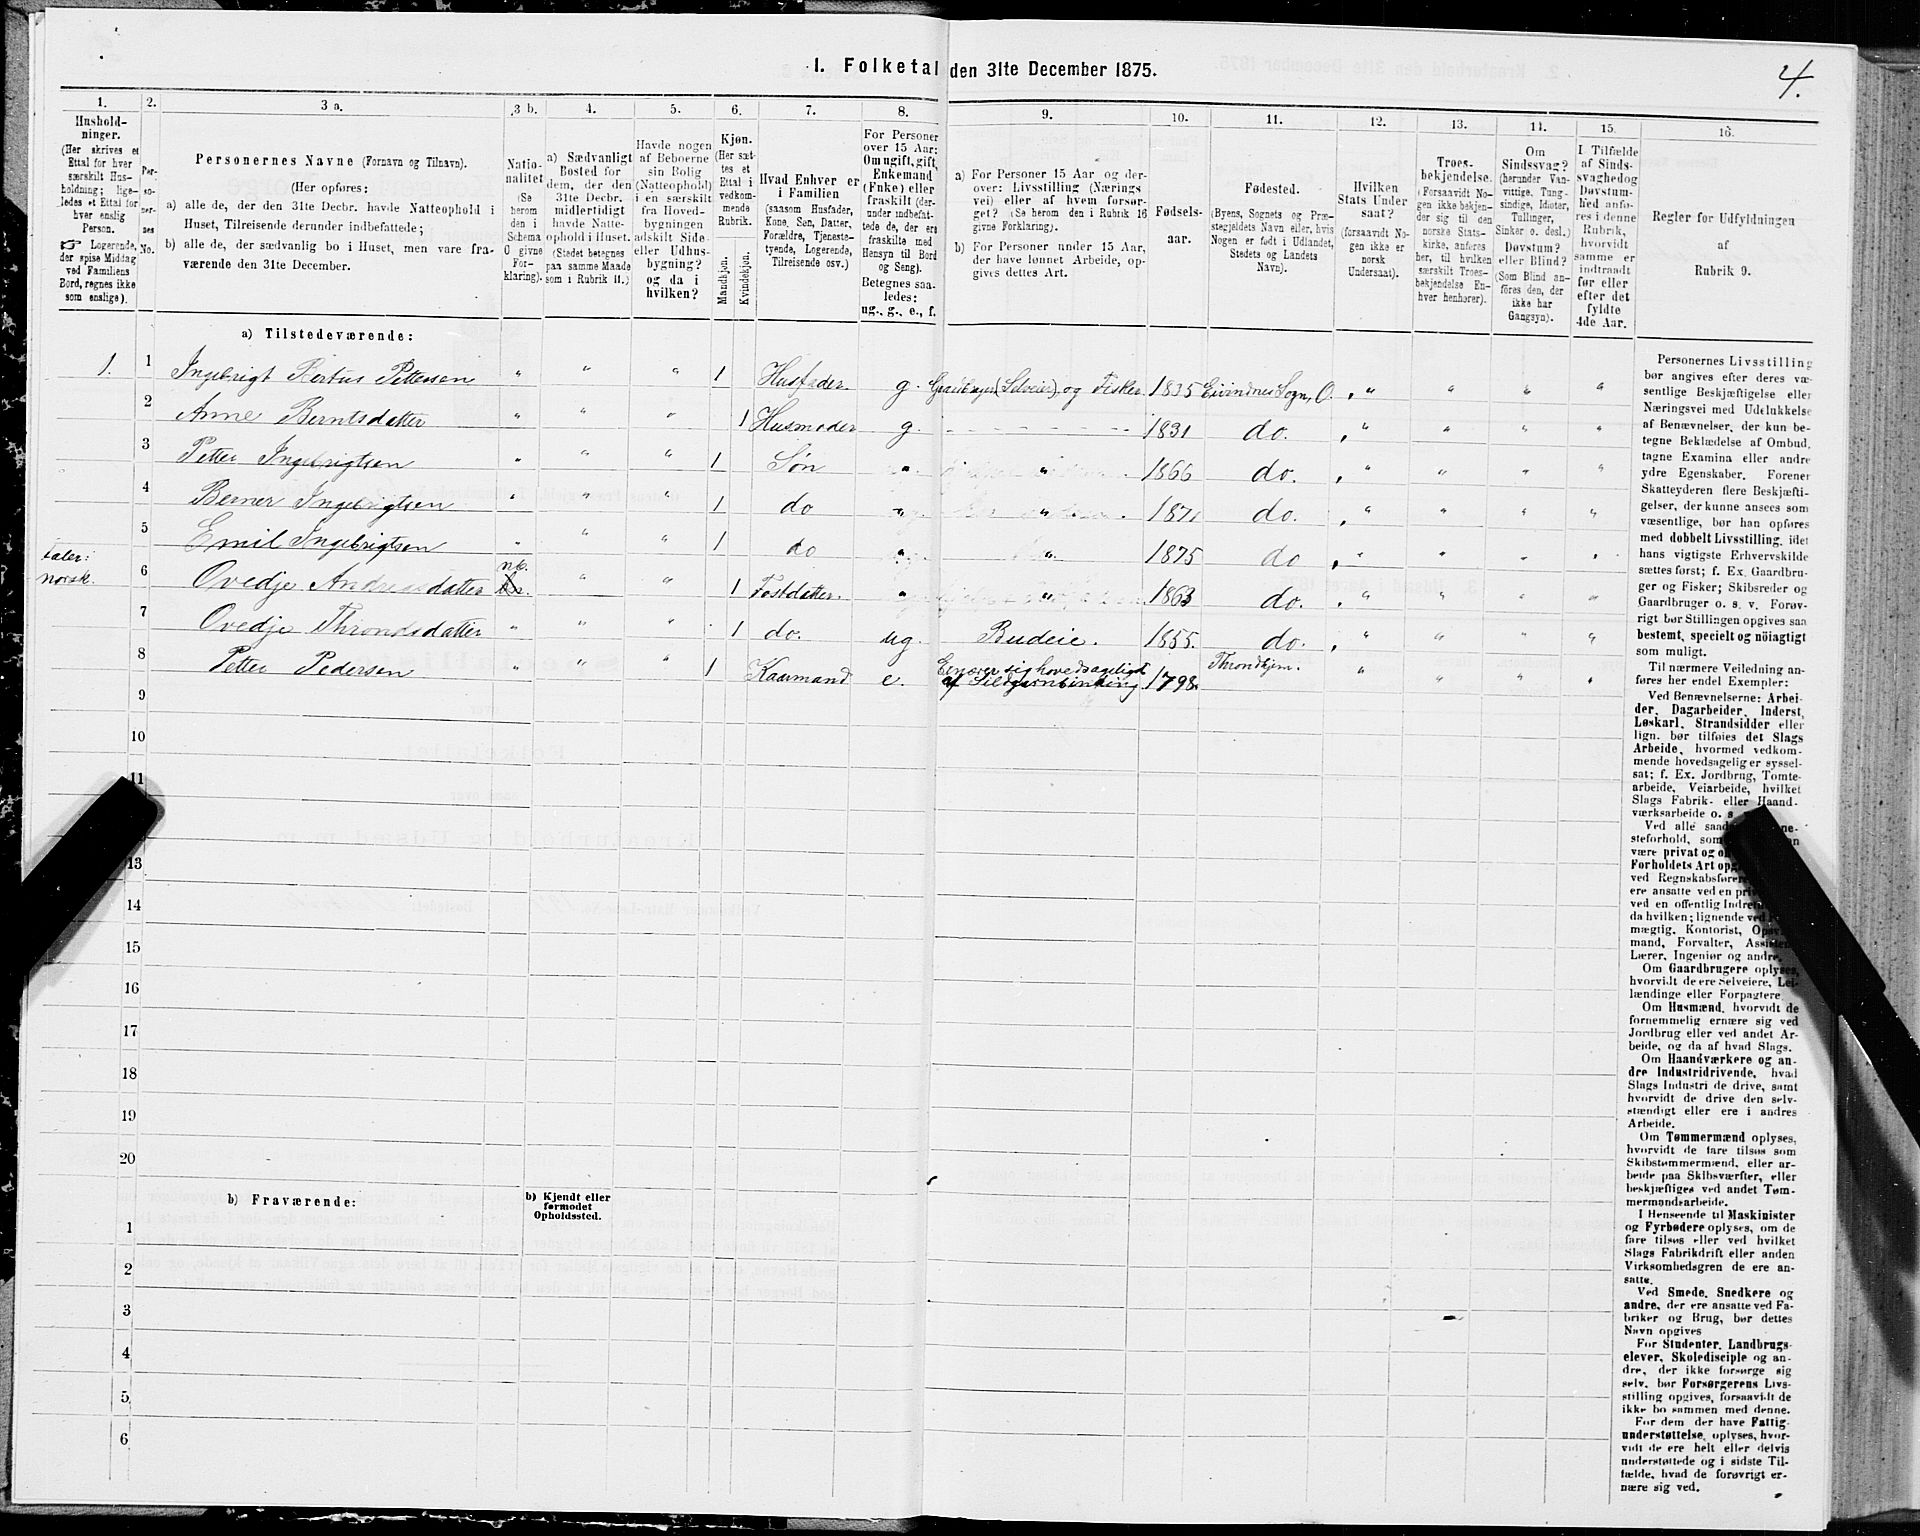 I. Folketal den 31te December 1875.
4.
1.
Hushold-
ninger.
(Her skrives et
Ettal for hver
særskilt Hus-
holdning; lige-
ledes et Ettal for
hver enslig
Person.
☞ Logerende,
der spise Middag
ved Familiens
Bord, regnes ikke
som enslige).
2.
Per-
so-
ner-
nes
No.
3 a.
Personernes Navne (Fornavn og Tilnavn).
(Her opføres:
a) alle de, der den 31te Decbr. havde Natteophold i
Huset, Tilreisende derunder indbefattede;
b) alle de, der sædvanlig bo i Huset, men vare fra-
værende den 31te December.
3 b.
Natio-
nalitet
(Se
herom
den i
Schema
O givne
For-
klaring).
4.
a) Sædvanligt
Bosted for
dem, der den
31te Decbr.
midlertidigt
havde Natte-
ophold i Huset.
(Stedet betegnes
paa samme Maade
som i Rubrik 11.)
5.
Havde nogen
af Beboerne
sin Bolig
(Natteophold)
i en særskilt
fra Hoved-
bygningen
adskilt Side-
eller Udhus-
bygning?
og da i
hvilken?
6.
Kjøn.
(Her sæt-
tes et
Ettal i
vedkom-
mende
Rubrik.
Mandkjøn.
Kvindekjøn.
7.
Hvad Enhver er
i Familien
(saasom Husfader,
Kone, Søn, Datter,
Forældre, Tjeneste-
tyende, Logerende,
Tilreisende osv.)
8.
For Personer
over 15 Aar:
Om ugift, gift,
Enkemand
(Enke) eller
fraskilt (der-
under indbefat-
tede de, der ere
fraskilte med
Hensyn til Bord
og Seng).
Betegnes saa-
ledes:
ug., g., e., f.
9.
a) For Personer 15 Aar og der-
over: Livsstilling (Nærings
vei) eller af hvem forsør-
get? (Se herom den i Rubrik 16
givne Forklaring).
b) For Personer under 15 Aar,
der have lønnet Arbeide, op-
gives dettes Art.
10.
Fødsels-
aar.
11.
Fødested.
(Byens, Sognets og Præ-
stegjeldets Navn eller, hvis
Nogen er født i Udlandet,
Stedets og Landets
Navn).
12.
Hvilken
Stats Under
saat?
(forsaavidt No-
gen ikke er
norsk
Undersaat).
13.
Troes-
bekjendelse.
(Forsaavidt No-
gen ikke bekjen-
der sig til den
norske Stats-
kirke, anføres
her, til hvilken
særskilt Troes-
bekjendelse En-
hver henhører).
14.
Om
Sindssvag?
(herunder Van-
vittige, Tung-
sindige, Idioter,
Tullinger,
Sinker o. desl.)
Døvstum?
eller Blind?
(Som Blind an-
føres den, der
ikke har
Gangsyn).
15.
I Tilfælde
af Sinds-
svaghed og
Døvstum-
hed anfø-
res i denne
Rubrik,
hvorvidt
samme er
indtraadt
før eller
efter det
fyldte
4de Aar.
16.
Regler for Udfyldningen
af
Rubrik 9.
a) Tilstedeværende:
1. 1 Ingebrigt Pettersen " " " 1 Husfader g. Gaardbruger (Selveier) og Fisker 1835 Eivindnes Sogn, O. " " " "
2 Anne Berntsdatter " " " 1 Husmoder g. - - - 1831 do. " " " "
3 Petter Ingebrigtsen " " " 1 Søn " " 1866 do. " " " "
4 Berner Ingebrigtsen " " " 1 do " " 1871 do. " " " "
5 Emil Ingebrigtsen " " " 1 do " " 1875 do " " " "
taler:
norsk. 6 Ovedje Andreasdatter " " 1 Fostdatter. " " 1863 do. " " " "
7 Ovedje Throndsdatter " " " 1 do. ug. Budeie. 1855 do. " " " "
8 Petter Pedersen " " " 1 Kaarmand e. Ernærer sig hovedsageligt
af Sildgarnbinding 1798. Throndhjem. " " " "
9
10
11
13
14
15
16
17
18
19
20
b) Fraværende:
b) Kjendt eller
formodet
Opholdssted.
1
2
3
4
5
6
Personernes Livsstilling
bør angives efter deres væ-
sentlige Beskjæftigelse eller
Næringsvei med Udelukkelse
af Benævnelser, der kun be-
tegne Beklædelse af Ombud,
tagne Examina eller andre
ydre Egenskaber. Forener
Skatteyderen flere Beskjæfti-
gelser, der kunne ansees som
væsentlige, bør han opføres
med dobbelt Livsstilling, idet
hans vigtigste Erhvervskilde
sættes først; f. Ex. Gaardbru-
ger og Fisker; Skibsreder og
Gaardbruger o. s. v. Forøv-
rigt bør Stillingen opgives saa
bestemt, specielt og nöiagtigt
som muligt.
Til nærmere Veiledning an-
føres her endel Exempler:
Ved Benævnelserne: Arbei-
der, Dagarbeider, Inderst,
Løskarl, Strandsidder eller
lign. bør tilføies det Slags
Arbeide, hvormed vedkom-
mende hovedsagelig er syssel-
sat; f. Ex. Jordbrug, Tomte-
arbeide, Veiarbeide, hvilket
Slags Fabrik- eller Haand-
værksarbeide o. s.
Ved alle
steforhold, som
være privat og
Forholdets Art
ved Regnskabsførere
ere ansatte ved en
ved en offentlig
da hvilken; lignende ved
mægtig, Kontorist,
mand, Forvalter,
Lærer, Ingeniør og andre.
Om Gaardbrugere oplyses,
hvorvidt de ere Selveiere, Lei-
lændinge eller Forpagtere.
Om Husmænd, hvorvidt de
fornemmelig ernære sig ved
Jordbrug eller ved andet Ar-
beide, og da af hvad Slags.
Om Haandværkere og an-
dre Industridrivende, hvad
Slags Industri de drive, samt
hvorvidt de drive den selv-
stændigt eller ere i andres
Arbeide.
Om Tømmermænd oplyses,
hvorvidt de fare tilsøs som
Skibstømmermænd, eller ar-
beide paa Skibsværfter, eller
beskjæftiges ved andet Tøm-
mermandsarbeide.
I Henseende til Maskinister
og Fyrbødere oplyses, om de
fare tilsøs eller ved hvilket
Slags Fabrikdrift eller anden
Virksomhedsgren de ere an-
satte.
Ved Smede, Snedkere og
andre, der ere ansatte ved Fa-
briker og Brug, bør dettes
Navn opgives
For Studenter, Landbrugs-
elever, Skoledisciple og an-
dre, der ikke forsørge sig
selv, bør Forsørgerens Livs-
stilling opgives, forsaavidt de
ikke bo sammen med denne.
For dem der have Fattig-
understøttelse, oplyses, hvor-
vidt de ere helt eller delvis
understøttede og i sidste Til-
fælde, hvad de forøvrigt er-
nære sig ved.